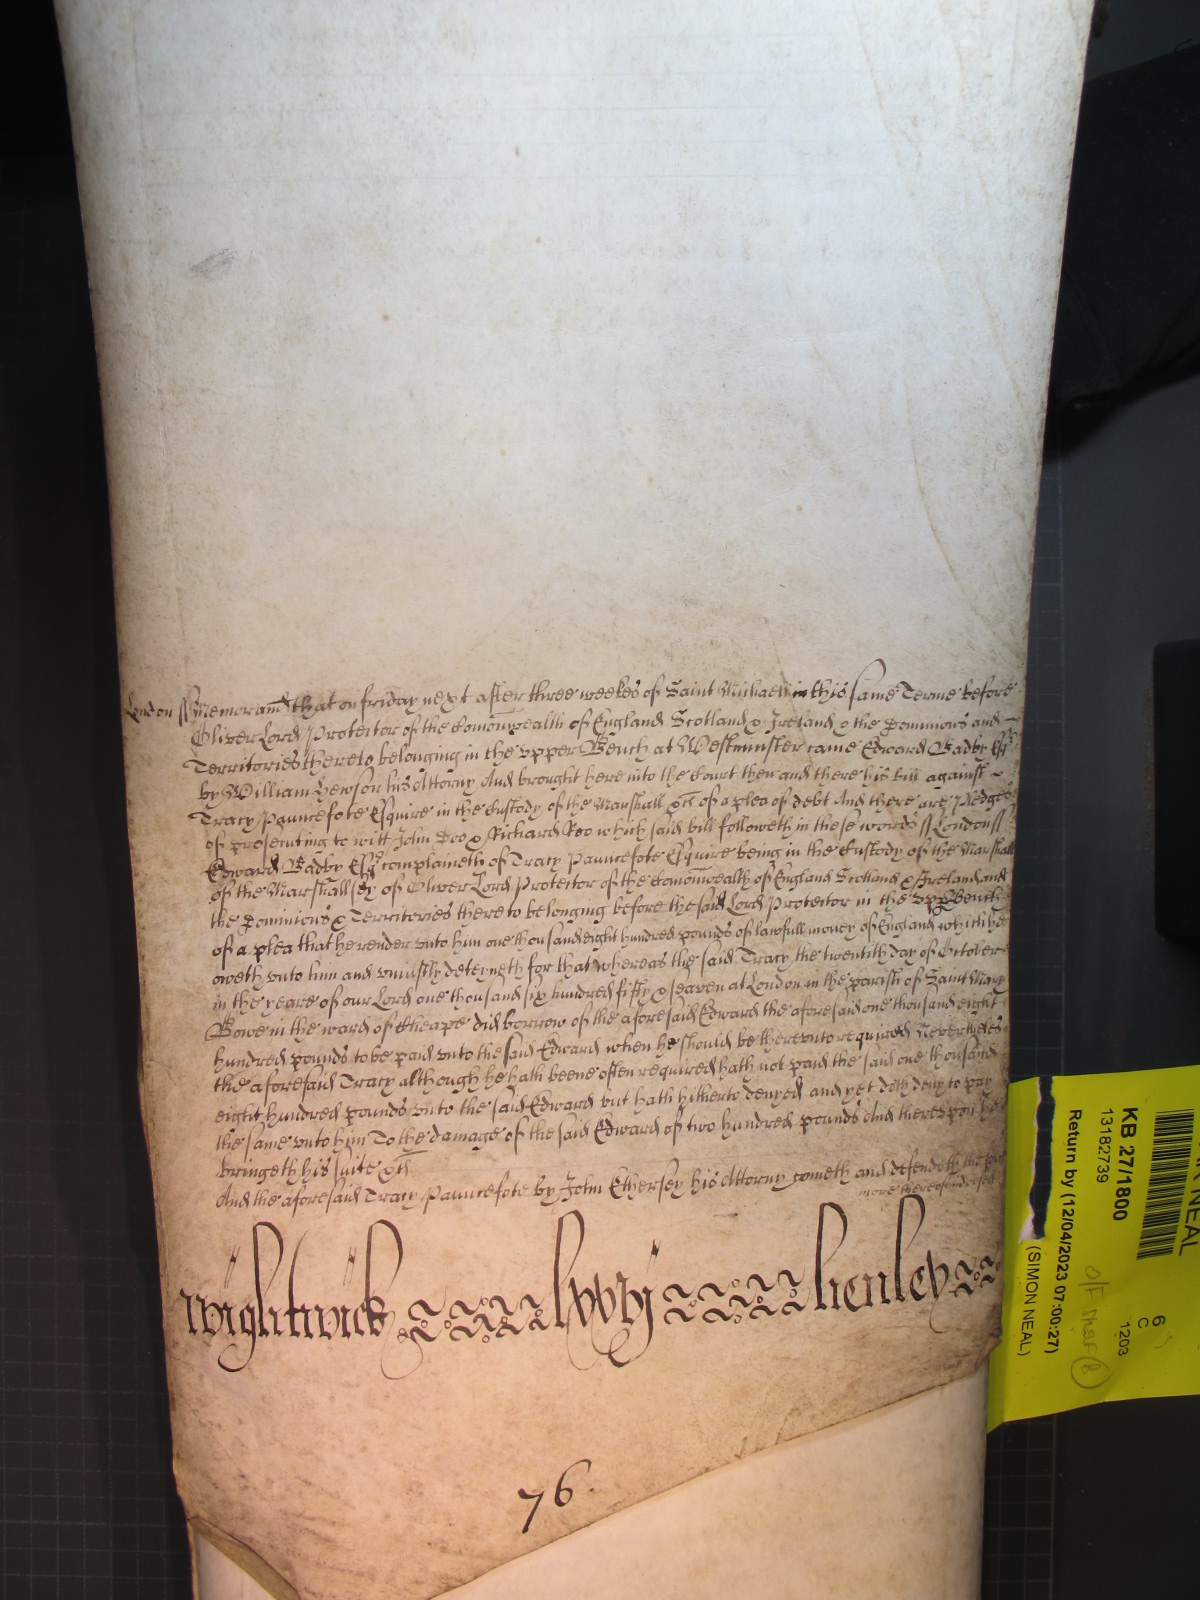 London ss Memorand that on friday next after three weekes of Saint Michaell in this same Terme before
Oliver Lord Protector of the Comonwealth of England Scotland & Ireland & the Dominions and
Territories thereto belonging in the vpper Bench at Westminster came Edward Badby Esqr
by William Hewson his Attorny And brought here into the Court then and there his bill against
Tracy Pauncefote Esquire in the Custody of the Marshall &c of a plea of debt And there are Pledges
of prosecuting to witt John Doo & Richard Roo which said bill followeth in these words ss London ss
Edward Badby Esqr complaineth of Tracy Pauncefote Esquire being in the Custody of the Marshall
of the Marshallsey of Oliver Lord Protector of the Comonwealth of England Scotland & Ireland and
the Dominions & Territories thereto belonging before the said Lord Protector in the vpp Bench
of a plea that he render vnto him one thousand eight hundred pounds of lawfull money of England which he
oweth vnto him and vniustly deteyneth for that whereas the said Tracy the twentith day of October
in the yeare of our Lord one thousand six hundred fifty & seaven at London in the parish of Saint Mary
Bowe in the ward of Cheape did borrow of the aforesaid Edward the aforesaid one thousand eight
hundred pounds to be paid vnto the said Edward when he should be therevnto required Nevertheles
the aforesaid Tracy although he hath beene often required hath not paid the said one thousand
eight hundred pounds vnto the said Edward but hath hitherto denyed and yet doth deny to pay
the same vnto him To the damage of the said Edward of two hundred pounds And therevpon he
bringeth his suite &c
And the aforesaid Tracy Pauncefote by John Ethersey his Attorny cometh and defendeth the
more thereof indorsed
Wightwick lxxvj henley
76
NEAL
KB 27/1800
13182739
Return by (12/04/2023 07:00:27)
(SIMON NEAL)
6
C
1203